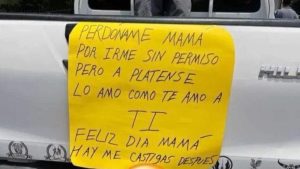 PERDÓNAME MAMA
POR IRME SIN PERMISO
PERO A PLATENSE
LO AMO COMO TE AMO A
TI
FELIZ DIA MAMÁ
HAY ME CASTIGAS DESPUES